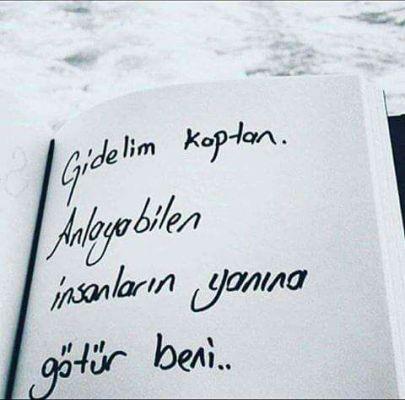 Gidelim kaptan.
Anlayabilen
insanların yanına
götür beni..